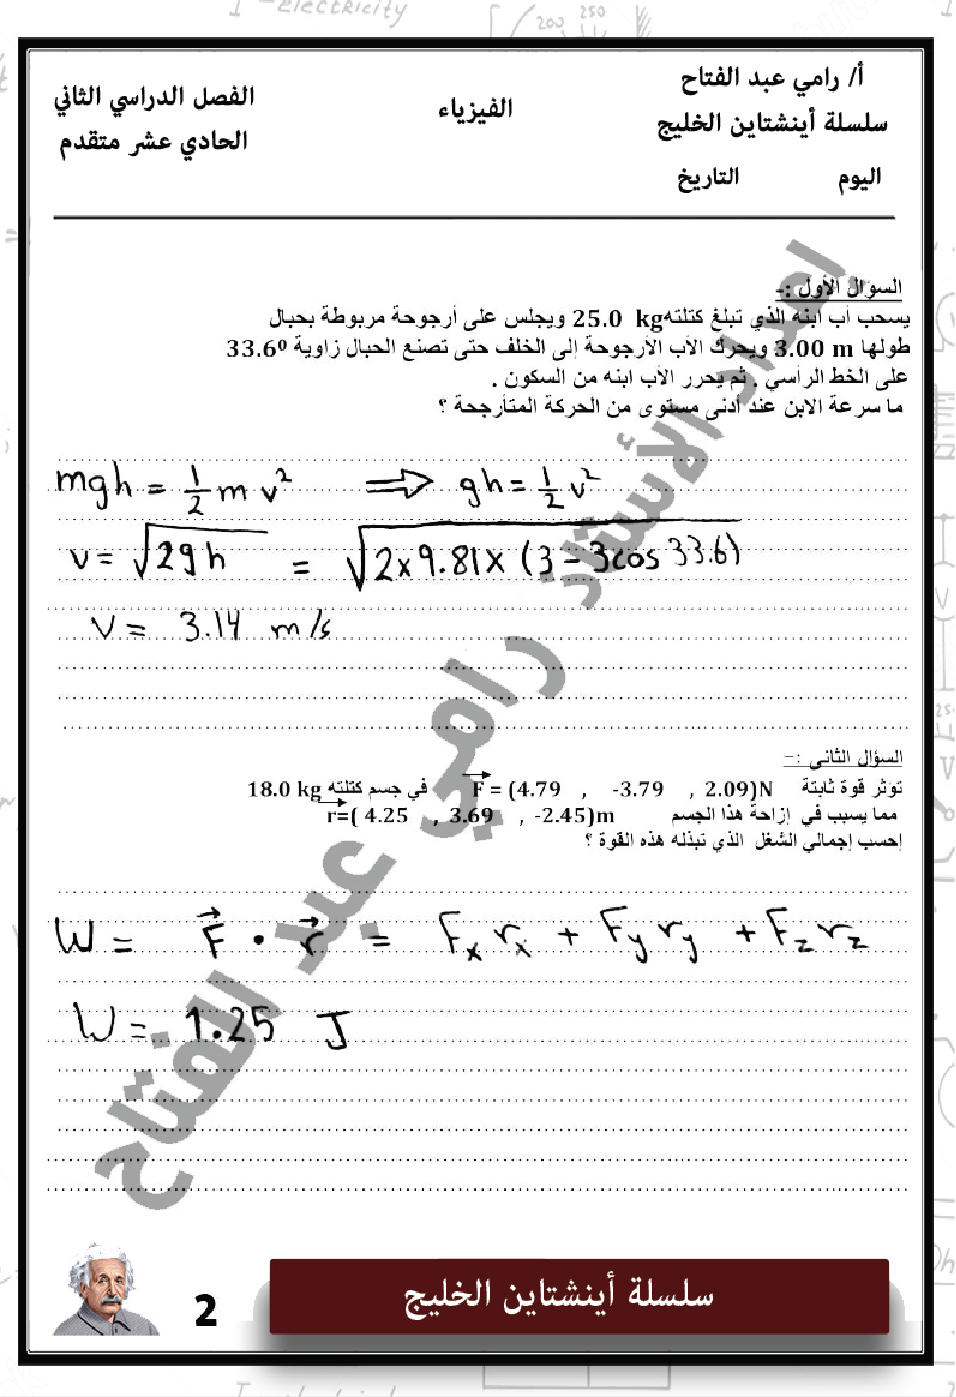 أ/ رامي عبد الفتاح
سلسلة أينشتاين الخليج
اليوم التاريخ
الفيزياء
الفصل الدراسي الثاني
الحادي عشر متقدم
السؤال الأول :-
يسحب أب ابنه الذي تبلغ كتلته 25.0 kg ويجلس على أرجوحة مربوطة بحبال
طولها 3.00 m ويحرك الأب الأرجوحة إلى الخلف حتى تصنع الحبال زاوية 33.6⁰
على الخط الرأسي . ثم يحرر الأب ابنه من السكون .
ما سرعة الابن عند أدنى مستوى من الحركة المتأرجحة ؟
mgh = 1/2 m v² ⇒ gh = 1/2 v²
v = √2gh = √2×9.81×(3-3cos 33.6)
v = 3.14 m/s
السؤال الثاني :-
تؤثر قوة ثابتة F = (4.79 , -3.79 , 2.09)N في جسم كتلته 18.0 kg
مما يسبب في إزاحة هذا الجسم r=( 4.25 , 3.69 , -2.45)m
إحسب إجمالي الشغل الذي تبذله هذه القوة ؟
W = F • r = Fx rx + Fy ry + Fz rz
W = 1.25 J
إعداد الأستاذ رامي عبد الفتاح
2
سلسلة أينشتاين الخليج